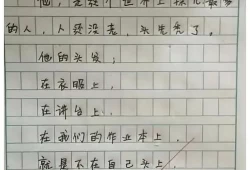 他，是这个世界上操心最多
的人，人还没老，头先秃了。
他的头发，
在衣服上，
在讲台上，
在我们的作业本上，
就是不在自己头上。